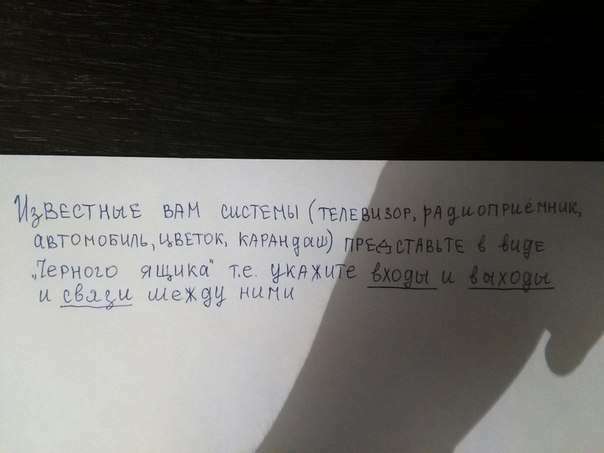 Известные вам системы (телевизор, радиоприёмник,
автомобиль, цветок, карандаш) представьте в виде
„Черного ящика" т.е. укажите входы и выходы
и связи между ними